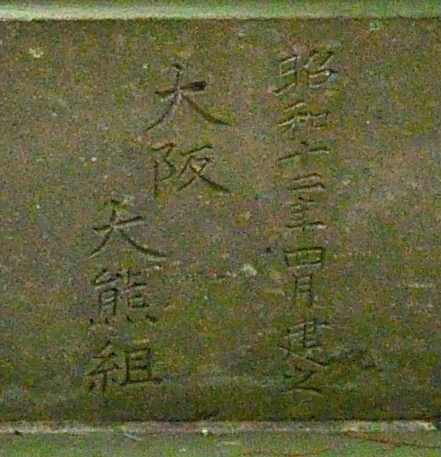 昭和十二年四月建之
大阪
大熊組